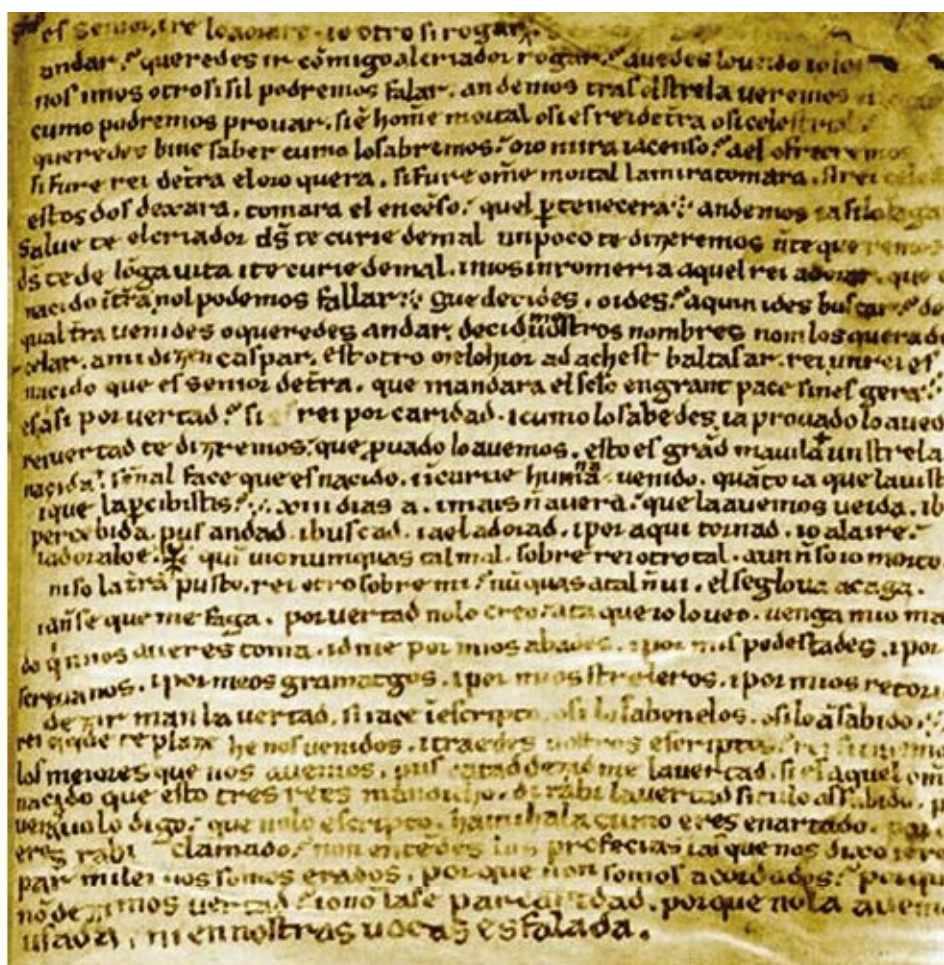 es senior, ire lo aorare . io otrosi rogar
andar . queredes ir cõmigo al criador rogar . auedes lo ueido io lo
nos imos otrosi sil podremos falar . andemos tras el strela ueremos el
cumo podremos prouar . si ẽ home mortal o si es rei de tr̃a o si celestrial .
queredes bine saber cumo lo sabremos . oro mira i acenso . a el ofreremos
si fure rei de tr̃a el oro quera . si fure om̃e mortal la mira tomara . si rei celes
estos dos dexara . tomara el encẽso . quel ꝑtenecera . andemos
salue te el criador dš te curie de mal un poco te dizeremos ñ te queremos
dš te de lõga uita i te curie de mal . imos in romeria aquel rei adorar . que
nacido ĩ tr̃a nol podemos fallar . que decides . o ides . a quin ides buscar . de
qual tr̃a uenides o queredes andar . decid uostros nombres nom los querades
celar . a mi dizen caspar . est otro melchior ad achest baltasar . rei un rei es
nacido que es senior de tr̃a . que mandara el seclo en grant pace sines gera .
es asi por uertad . si rei por caridad . i cumo lo sabedes ia prouado lo aued
rei uertad te dizremos . que ꝓuado lo auemos . esto es grãd marauila un strela
nacida . sẽnal face que es nacido . i ĩ carne humana uenido . quãto ia que la uist
i que la ꝑcibistis . xiii dias a . i mais ñ auera . que la auemos ueida . i b
percebida . pus andad . i buscad . i a el adorad . i por aqui tornad . io ala ire .
i adoralo e . qui uio numquas tal mal . sobre rei otro tal . aun ñ so io morto
ni so la tr̃a pusto . rei otro sobre mi . nũquas atal ñ ui . el seglo ua a caga .
ia ñ se que me faga . por uertad no lo creo . ata que io lo ueo . uenga mio ma
do q̃ mios aueres toma . id me por mios abades . i por mis podestades . i por
scriuanos . i por meos gramatgos . i por mios streleros . i por mios retori
dezir m an la uertad . si iace ĩ escripto o si lo saben elos . o si lo ã sabido .
rei qque te plaze he nos uenidos . i traedes uostros escriptos . rei si traemo
los meiores que nos auemos . pus catad dezid me la uertad . si es aquel om̃
nacido que esto tres rees m an dicho . di rabi la uertad si tu lo as sabido . p
uo lo digo . que no lo escripto . hamihala cumo eres enartado . por
eres rabi clamado . non entẽdes las profecias las que nos dixo iere
par mi lei nos somos erados . por que non somos acordados . porqu
nõ dezimos uertad . io no la se par caridad . porque no la auemo
usada . ni en nostras uocas es falada .